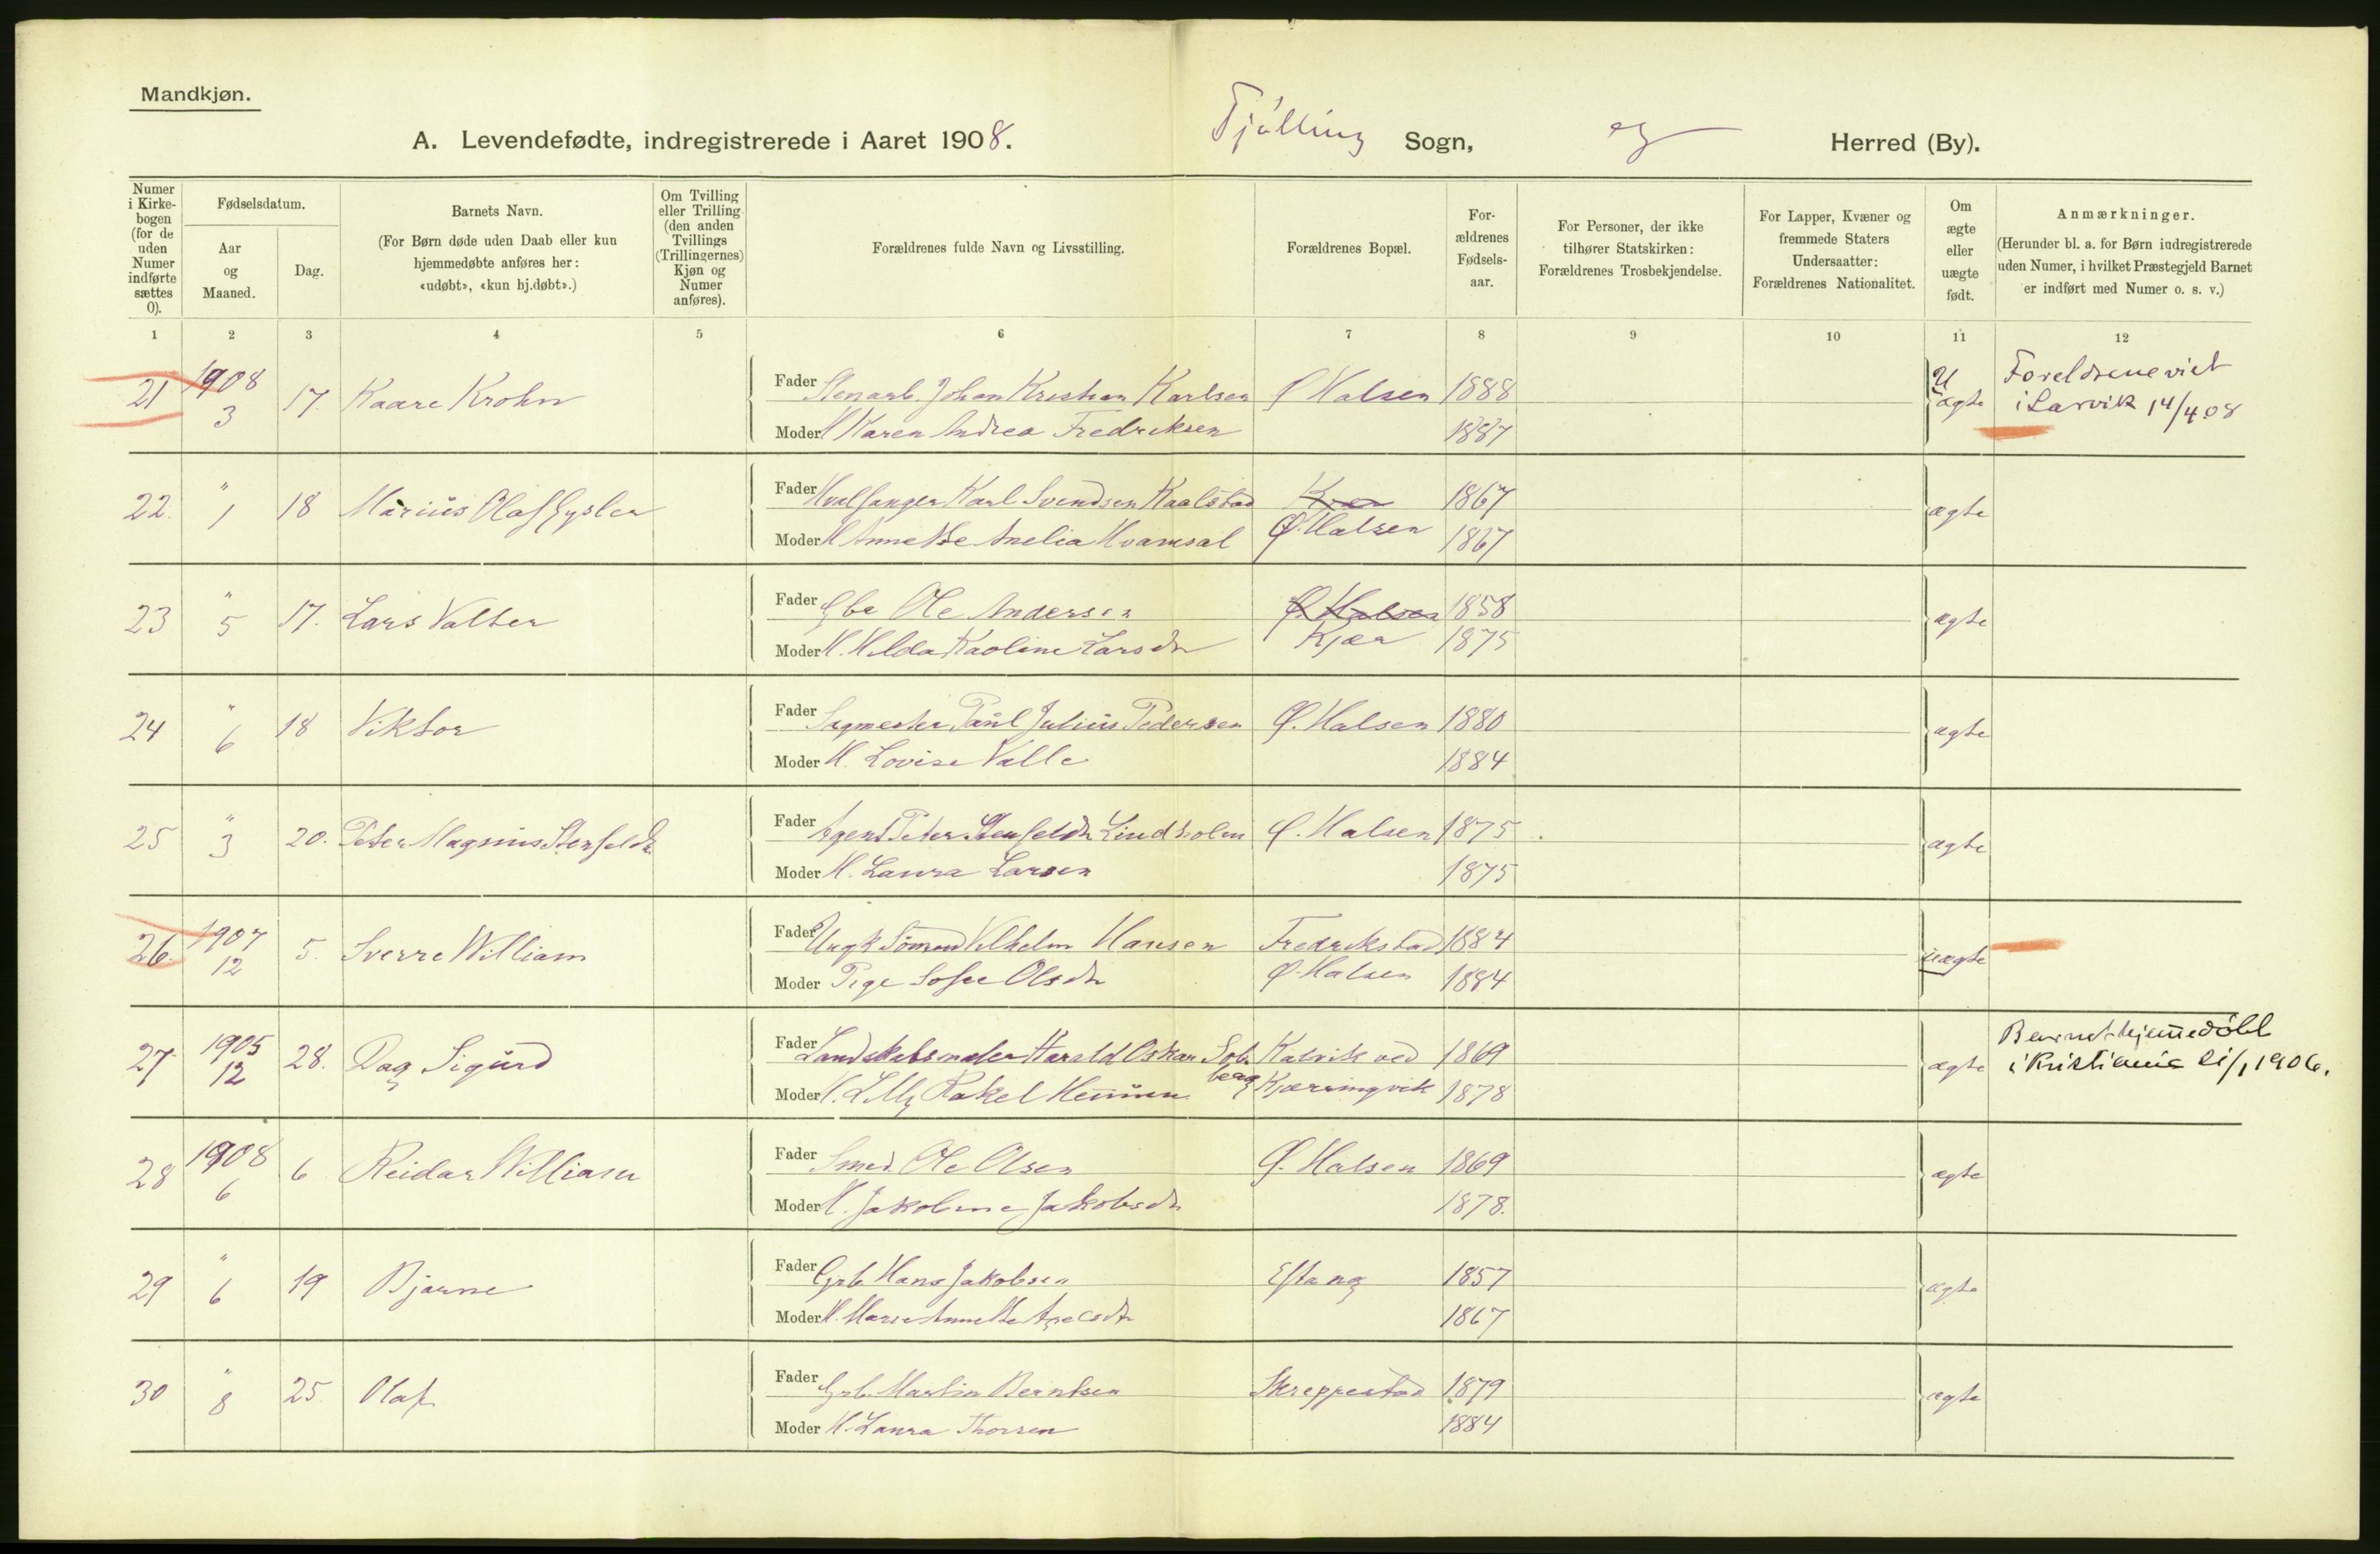 Mandkjøn.
A. Levendefødte, indregistrerede i Aaret 1908. Tjølling Sogn, Herred (By).
Numer i Kirkebogen (for de uden Numer indførte sættes 0).
Fødselsdatum.
Aar og Maaned.
Dag.
Barnets Navn.
(For Børn døde uden Daab eller kun hjemmedøbte anføres her: «udøbt», «kun hj.døbt».)
Om Tvilling eller Trilling (den anden Tvillings (Trillingernes) Kjøn og Numer anføres).
Forældrenes fulde Navn og Livsstilling.
Forældrenes Bopæl.
Forældrenes Fødselsaar.
For Personer, der ikke tilhører Statskirken: Forældrenes Trosbekjendelse.
For Lapper, Kvæner og fremmede Staters Undersaatter: Forældrenes Nationalitet.
Om ægte eller uægte født.
Anmærkninger.
(Herunder bl. a. for Børn indregistrerede uden Numer, i hvilket Præstegjeld Barnet er indført med Numer o. s. v.)
1 2 3 4 5 6 7 8 9 10 11 12
21 1908 3 17. Kaare Krohn Fader Stenarb. Johan Kristian Karlsen Ø Halsen 1888 U ægte Foreldrene viet i Larvik 14/4 08
Moder H Karen Andrea Fredriksen 1887
22. " 1 18 Marius Olaf Gysler Fader Hvalfanger Karl Svendsen Kaalstad Kjær 1867 ægte
Moder H Annette Amelia Hvamsal Ø. Halsen 1867
23 " 5 17. Lars Valter Fader Gbr Ole Andersen Ø. Halsen 1858 ægte
Moder H. Hilda Karoline Larsdr Kjær 1875
24 " 6 18 Viktor Fader Sagmester Paul Julius Pedersen Ø. Halsen 1880 ægte
Moder H. Lovise Valle 1884
25 " 3 20. Peter Magnus Stenfeldt Fader Agent Peter Stenfeldt Lindholm Ø. Halsen 1875 ægte
Moder H. Laura Larsen 1875
26. 1907 12 5. Sverre William Fader Ungk Sømand Vilhelm Hansen Fredrikstad 1884 uægte
Moder Pige Sofie Olsdr Ø. Halsen 1884
27 1905 12 28. Dag Sigurd Fader Landskabsmaler Harald Oskar Solberg Kalvik ved 1869 ægte Barnet hjemmedøbt i Kristiania 21/1 1906.
Moder H. Lilly Rakel Kjærringvik 1878
28 1908 6 6 Reidar William Fader Smed Ole Olsen Ø. Halsen 1869 ægte
Moder H. Jakobine Jakobsdr 1878.
29 " 6 19 Bjarne Fader Grb. Hans Jakobsen Eftang 1857 ægte
Moder H. Marie Annette 1867
30 " 8 25. Olaf Fader Grb. Martin Berntsen Skreppestad 1879 ægte
Moder H. Laura Thorsen 1884